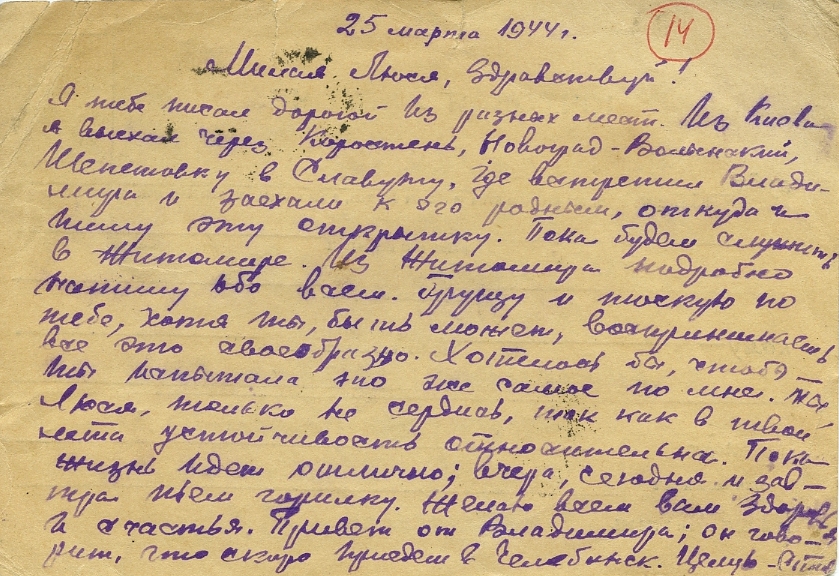 25 марта 1944 г.
14
Милая Люся, здравствуй!
Я тебе писал дорогой из разных мест. Из Киева
я выехал через Коростень, Новоград-Волынский,
Шепетовку в Славуту, где встретил Влади-
мира и заехали к его родным, откуда и
пишу эту открытку. Пока будем служить
в Житомире. Из Житомира подробно
напишу обо всем. Грущу и тоскую по
тебе, хотя ты, быть может, воспринимаешь
все это своеобразно. Хотелось бы, чтобы
ты испытала то же самое по мне. Ты,
Люся, только не сердись, так как в твои
лета устойчивость относительна. Пока
жизнь идет отлично; вчера, сегодня и зав-
тра пьем горилку. Желаю всем вам здоровья
и счастья. Привет от Владимира; он гово-
рит, что скоро приедет в Челябинск. Целую -